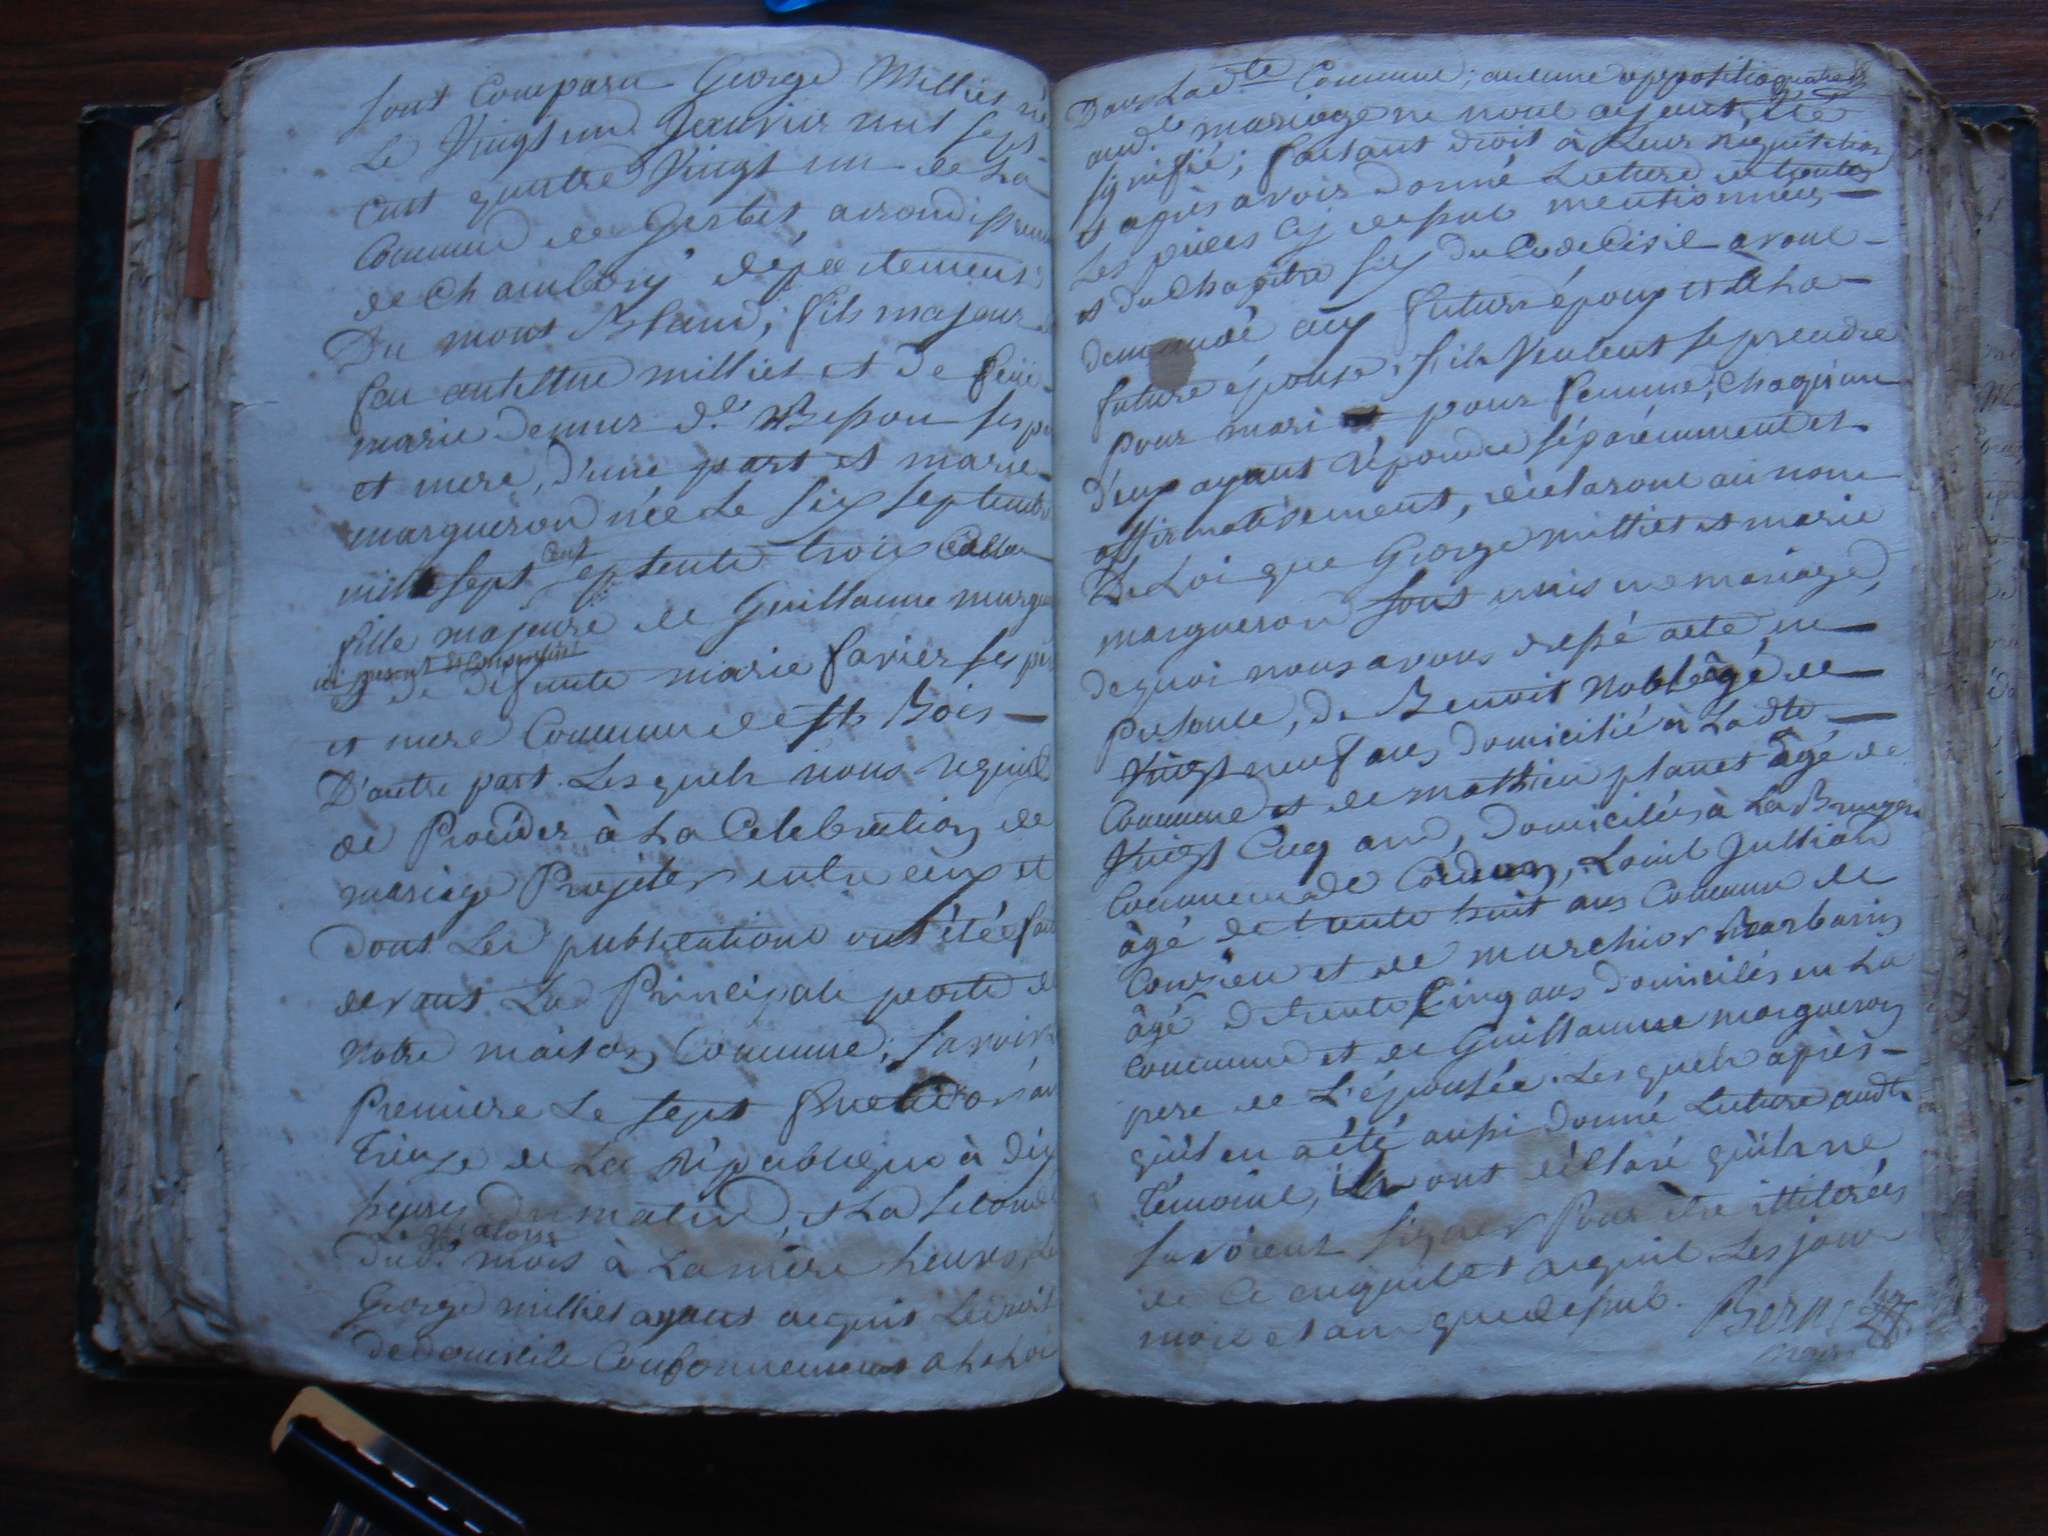 sont Comparu George Milliet né
Le Vingt un Janvier mil sept
Cent quatre Vingt un de La
Commune de Gerbet, arondissem
de Chambéry département
Du mont Blanc, fils majeur
feu anthelme milliet et de feüe
marie demur d.e Besson ses pe
et mere, d'une part et marie
margueron née Le six septembre
mille sept Cent septente trois
fille majeure de Guillaume margue
ici present & Consentant
& de defunte marie favier ses per
et mere Commune de st Bois
D'autre part. Lesquels nous requis
de Proceder à La Celebration de
mariage Projeter entre eux et
dont Les publications ont été fait
devant La Principale porte de
Notre maison Commune, Savoir
Premiere Le sept fructidor an
Treize de La République à dix
heures du matin, et La seconde
Le quatorze
dud. mois à La même heure, Le
George milliet ayant acquis Le droit
de domicile Conformement a La Loi
Dans Lad.te Commune; aucune opposition
aud.t mariage ne nous ayant été
signifié; faisant droit à Leur requisition
et après avoir donné Lecture de toutes
Les pièces Cy dessus mentionnées
et du Chapitre six du Code Civil avons
demandé au futur époux et à La
future épouse, s'ils Veulent se prendre
pour mari et pour femme, Chaqu'un
d'eux ayant répondu séparemment et
affirmativement, déclarons au nom
De Loi que George milliet et marie
margueron sont unis en mariage,
de quoi nous avons dressé acte en
presence, de Benoit Noble âgé de
Vingt neuf ans domicilié à Ladte
Commune et de mathieu planet âgé de
Vingt Cinq ans, domiciliés à La Bruyere
Commune de Cordon, Louis Jullian
âgé de trente huit ans Commune de
Conzieu et de murchior Barbarin
âgé de trente Cinq ans domiciliés en La
Commune et de Guillaume margueron
pere de L'épousée. Les quels après
qu'il en a été aussi donné Lecture audts
Témoins, ils ont déclaré qu'ils ne
savoient signer Pour être illiterés
de Ce enquis et requis. Les jour
mois et an que dessus.